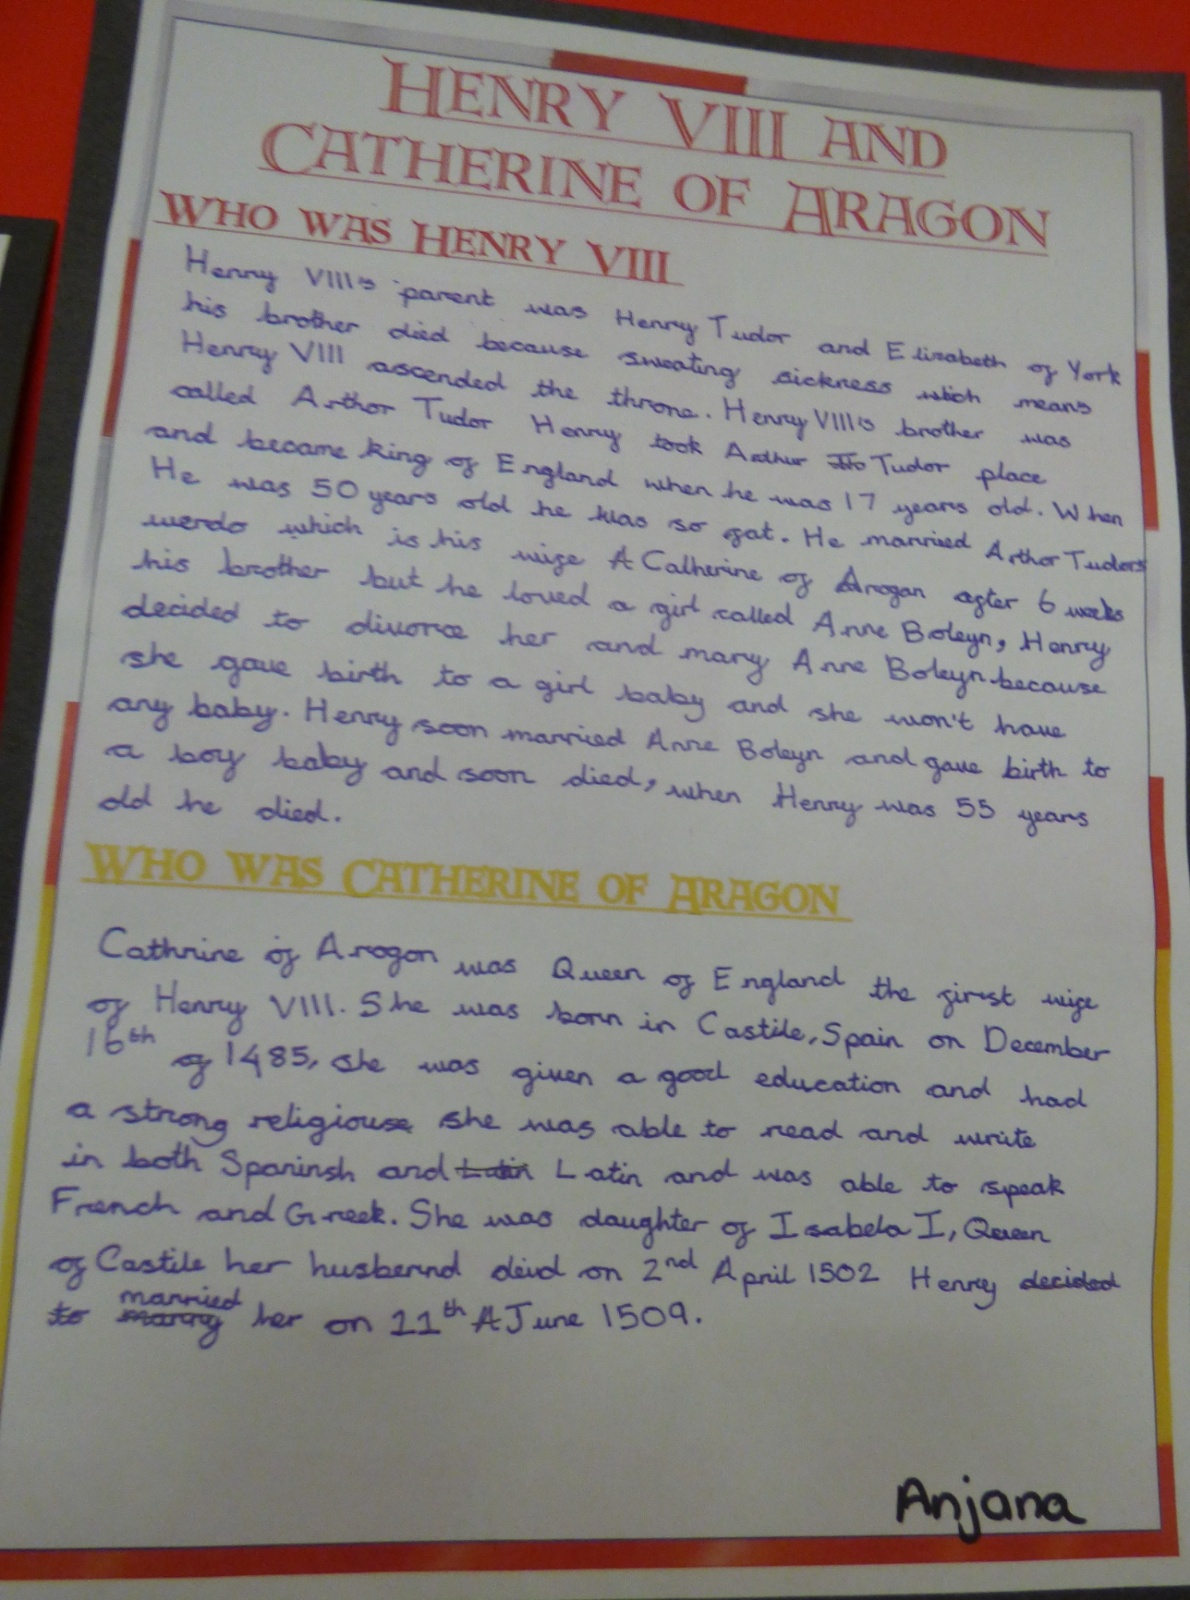 HENRY VIII AND
CATHERINE OF ARAGON
WHO WAS HENRY VIII
Henry VIII's parent was Henry Tudor and Elizabeth of York
his brother died because sweating sickness which means
Henry VIII ascended the throne. Henry VIII's brother was
called Arthor Tudor Henry took Arthur Tudor place
and became king of England when he was 17 years old. When
He was 50 years old he was so fat. He married Arthor Tudors
werdo which is his wife A Catherine of Arogan after 6 weeks
his brother but he loved a girl called Anne Boleyn, Henry
decided to divorce her and mary Anne Boleyn because
she gave birth to a girl baby and she won't have
any baby. Henry soon married Anne Boleyn and gave birth to
a boy baby and soon died, when Henry was 55 years
old he died.
WHO WAS CATHERINE OF ARAGON
Cathrine of Aragon was Queen of England the first wife
of Henry VIII. She was born in Castile, Spain on December
16th of 1485, she was given a good education and had
a strong religiouse she was able to read and write
in both Spaninsh and Latin Latin and was able to speak
French and Greek. She was daughter of Isabela I, Queen
of Castile her husbernd deid on 2nd April 1502 Henry decided
to marry married her on 11th A June 1509.
Anjana